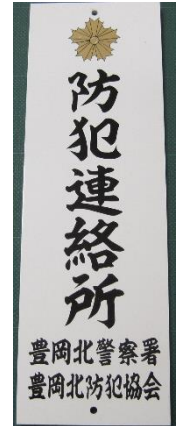 防犯連絡所
豊岡北警察署
豊岡北防犯協会